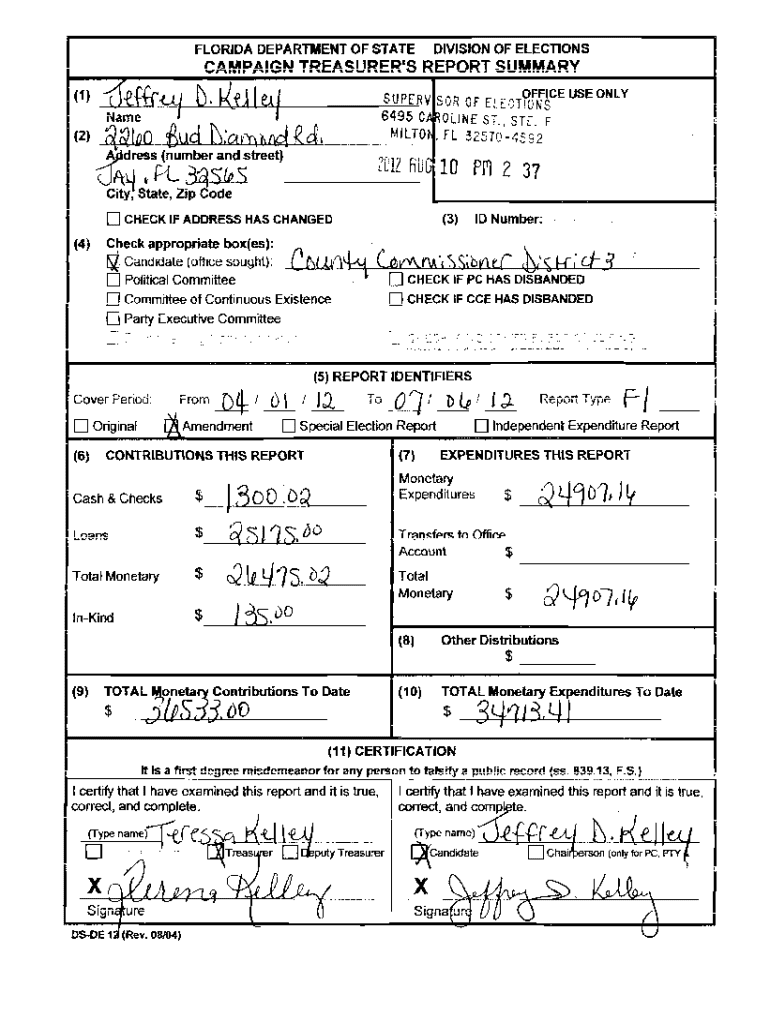 FLORIDA DEPARTMENT OF STATE DIVISION OF ELECTIONS
CAMPAIGN TREASURER'S REPORT SUMMARY
(1) Jeffrey D. Kelley
Name
OFFICE USE ONLY
SUPERVISOR OF ELECTIONS
6495 CAROLINE ST., STE. F
MILTON, FL 32570-4592
2012 AUG 10 PM 2 37
(2) 2260 Bud Diamond Rd.
Address (number and street)
Jay, FL 32565
City, State, Zip Code
CHECK IF ADDRESS HAS CHANGED (3) ID Number:
(4) Check appropriate box(es):
Candidate (office sought): County Commissioner District 3
Political Committee CHECK IF PC HAS DISBANDED
Committee of Continuous Existence CHECK IF CCE HAS DISBANDED
Party Executive Committee
(5) REPORT IDENTIFIERS
Cover Period: From 04 / 01 / 12 To 07 / 06 / 12 Report Type F1
Original X Amendment Special Election Report Independent Expenditure Report
(6) CONTRIBUTIONS THIS REPORT
Cash & Checks $ 1300.02
Loans $ 25175.00
Total Monetary $ 26475.02
In-Kind $ 135.00
(7) EXPENDITURES THIS REPORT
Monetary
Expenditures $ 24907.16
Transfers to Office
Account $
Total
Monetary $ 24907.16
(8) Other Distributions
$
(9) TOTAL Monetary Contributions To Date
$ 36533.00
(10) TOTAL Monetary Expenditures To Date
$ 34713.41
(11) CERTIFICATION
It is a first degree misdemeanor for any person to falsify a public record (ss. 839.13, F.S.)
I certify that I have examined this report and it is true,
correct, and complete.
(Type name) Teressa Kelley
X Treasurer Deputy Treasurer
X Kelley
Signature
I certify that I have examined this report and it is true,
correct, and complete.
(Type name) Jeffrey D. Kelley
X Candidate Chairperson (only for PC, PTY
X Jeffrey D. Kelley
Signature
DS-DE 12 (Rev. 08/04)